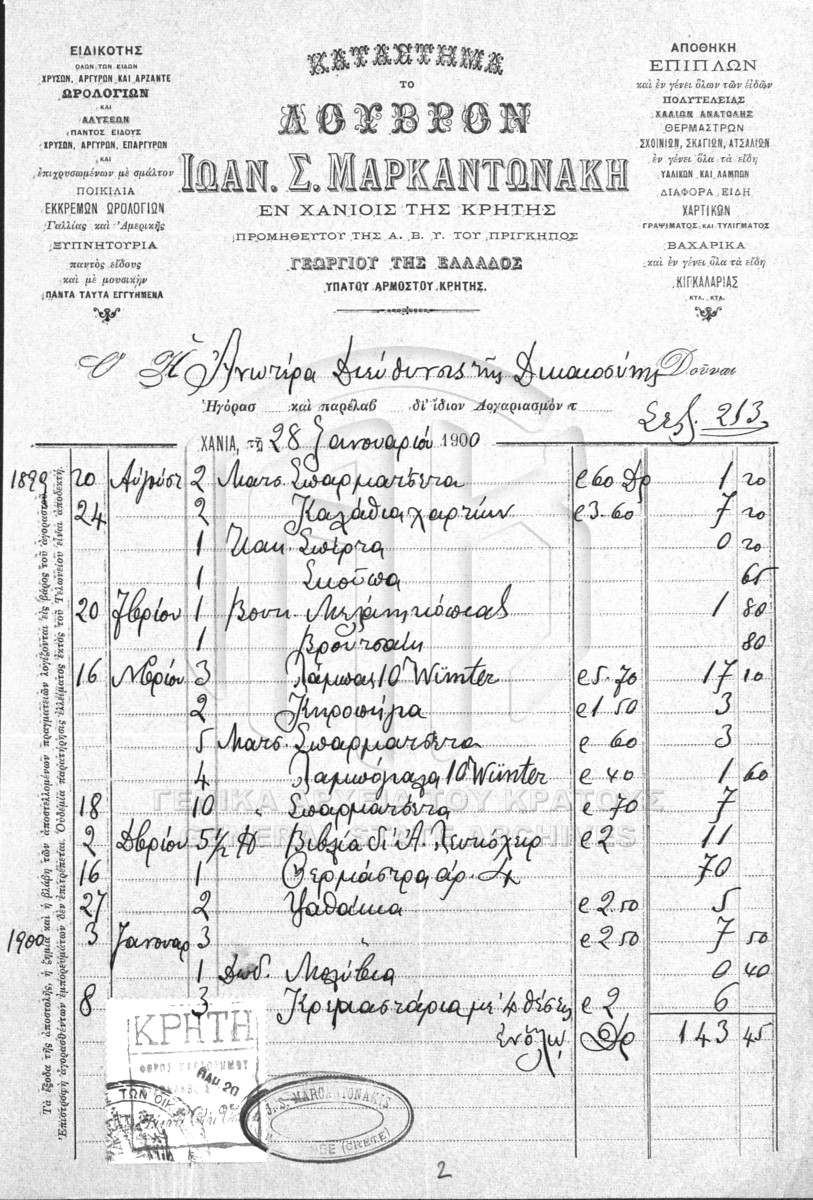 ΕΙΔΙΚΟΤΗΣ
ΟΛΩΝ ΤΩΝ ΕΙΔΩΝ
ΧΡΥΣΩΝ, ΑΡΓΥΡΩΝ ΚΑΙ ΑΡΖΑΝΤΕ
ΩΡΟΛΟΓΙΩΝ
ΚΑΙ
ΑΛΥΣΕΩΝ
ΠΑΝΤΟΣ ΕΙΔΟΥΣ
ΧΡΥΣΩΝ, ΑΡΓΥΡΩΝ, ΕΠΑΡΓΥΡΩΝ
ΚΑΙ
ἐπιχρυσωμένων μὲ σμάλτον
ΠΟΙΚΙΛΙΑ
ΕΚΚΡΕΜΩΝ ΩΡΟΛΟΓΙΩΝ
Γαλλίας καὶ Ἀμερικῆς
ΞΥΠΝΗΤΟΥΡΙΑ
παντὸς εἴδους
καὶ μὲ μουσικὴν
ΠΑΝΤΑ ΤΑΥΤΑ ΕΓΓΥΗΜΕΝΑ
ΚΑΤΑΣΤΗΜΑ
ΤΟ
ΛΟΥΒΡΟΝ
ΙΩΑΝ. Σ. ΜΑΡΚΑΝΤΩΝΑΚΗ
ΕΝ ΧΑΝΙΟΙΣ ΤΗΣ ΚΡΗΤΗΣ
ΠΡΟΜΗΘΕΥΤΟΥ ΤΗΣ Α. Β. Υ. ΤΟΥ ΠΡΙΓΚΗΠΟΣ
ΓΕΩΡΓΙΟΥ ΤΗΣ ΕΛΛΑΔΟΣ
ΥΠΑΤΟΥ ΑΡΜΟΣΤΟΥ ΚΡΗΤΗΣ.
ΑΠΟΘΗΚΗ
ΕΠΙΠΛΩΝ
καὶ ἐν γένει ὅλων τῶν εἰδῶν
ΠΟΛΥΤΕΛΕΙΑΣ
ΧΑΛΙΩΝ ΑΝΑΤΟΛΗΣ
ΘΕΡΜΑΣΤΡΩΝ
ΣΧΟΙΝΙΩΝ, ΣΚΑΓΙΩΝ, ΑΤΣΑΛΙΩΝ
ἐν γένει ὅλα τὰ εἴδη
ΥΑΛΙΚΩΝ ΚΑΙ ΛΑΜΠΩΝ
ΔΙΑΦΟΡΑ ΕΙΔΗ
ΧΑΡΤΙΚΩΝ
ΓΡΑΨΙΜΑΤΟΣ ΚΑΙ ΤΥΛΙΓΜΑΤΟΣ
ΒΑΧΑΡΙΚΑ
καὶ ἐν γένει ὅλα τὰ εἴδη
ΚΙΓΚΑΛΑΡΙΑΣ
ΚΤΛ. ΚΤΛ.
Ὁ Ἡ Ἀνωτέρα Διεύθυνσις τῆς Δικαιοσύνης Δοῦναι
Ἠγόρασ καὶ παρέλαβ δι' ἴδιον λογαριασμόν τ
Σελ. 213
ΧΑΝΙΑ, τῇ 28 Ἰανουαρίου 1900
1899 20 Αὐγούστ 2 Ματσ. Σπαρματσέτα @ 60 Δρ 1 20
24 2 Καλάθια χαρτιών @ 3.60 7 20
1 Πακ. Σπίρτα 0 20
1 Σκοῦπα 65
20 7βρίου 1 Βουκ. Μελάνη κόπιας 1 80
1 Βροῦτσάκι 80
16 Νβρίου 3 Λάμπας 10''' Wünter @ 5.70 17 10
2 Κηροπήγια @ 1 50 3
5 Ματσ. Σπαρματσέτα @ 60 3
4 Λαμπόγυαλα 10''' Wünter @ 40 1 60
18 10 " Σπαρματσέτα @ 70 7
2 Δβρίου 5 1/2 @ 2 11
16 1 Θερμάστρα ἀρ. 4 70
27 2 Ψαθάκια @ 2.50 5
1900 3 Ἰανουαρ 3 " @ 2 50 7 50
1 Δωδ. Μολύβια 0 40
8 3 Κρεμαστάρια με 4 θέσεις @ 2 6
Ἐν ὅλῳ Δρ 143 45
Τὰ ἔξοδα τῆς ἀποστολῆς, ἡ ζημία καὶ ἡ βλάβη τῶν ἀποστελλομένων πραγματειῶν λογίζονται εἰς βάρος τοῦ ἀγοραστοῦ.
Ἐπιστροφὴ ἀγορασθέντων ἐμπορευμάτων δὲν ἐπιτρέπεται. Οὐδεμία παρατήρησις ἐλλείματος ἐκτὸς τοῦ Τελωνείου εἶναι ἀποδεκτή.
ΓΕΝΙΚΑ ΑΡΧΕΙΑ ΤΟΥ ΚΡΑΤΟΥΣ
GENERAL STATE ARCHIVES
ΚΡΗΤΗ
ΦΟΡΟΣ ΧΑΡΤΟΣΗΜΟΥ
ΠΑΡ 20
ΤΩΝ ΟΙΚ
J. S. MARCANTONAKIS
(CRETE)
2